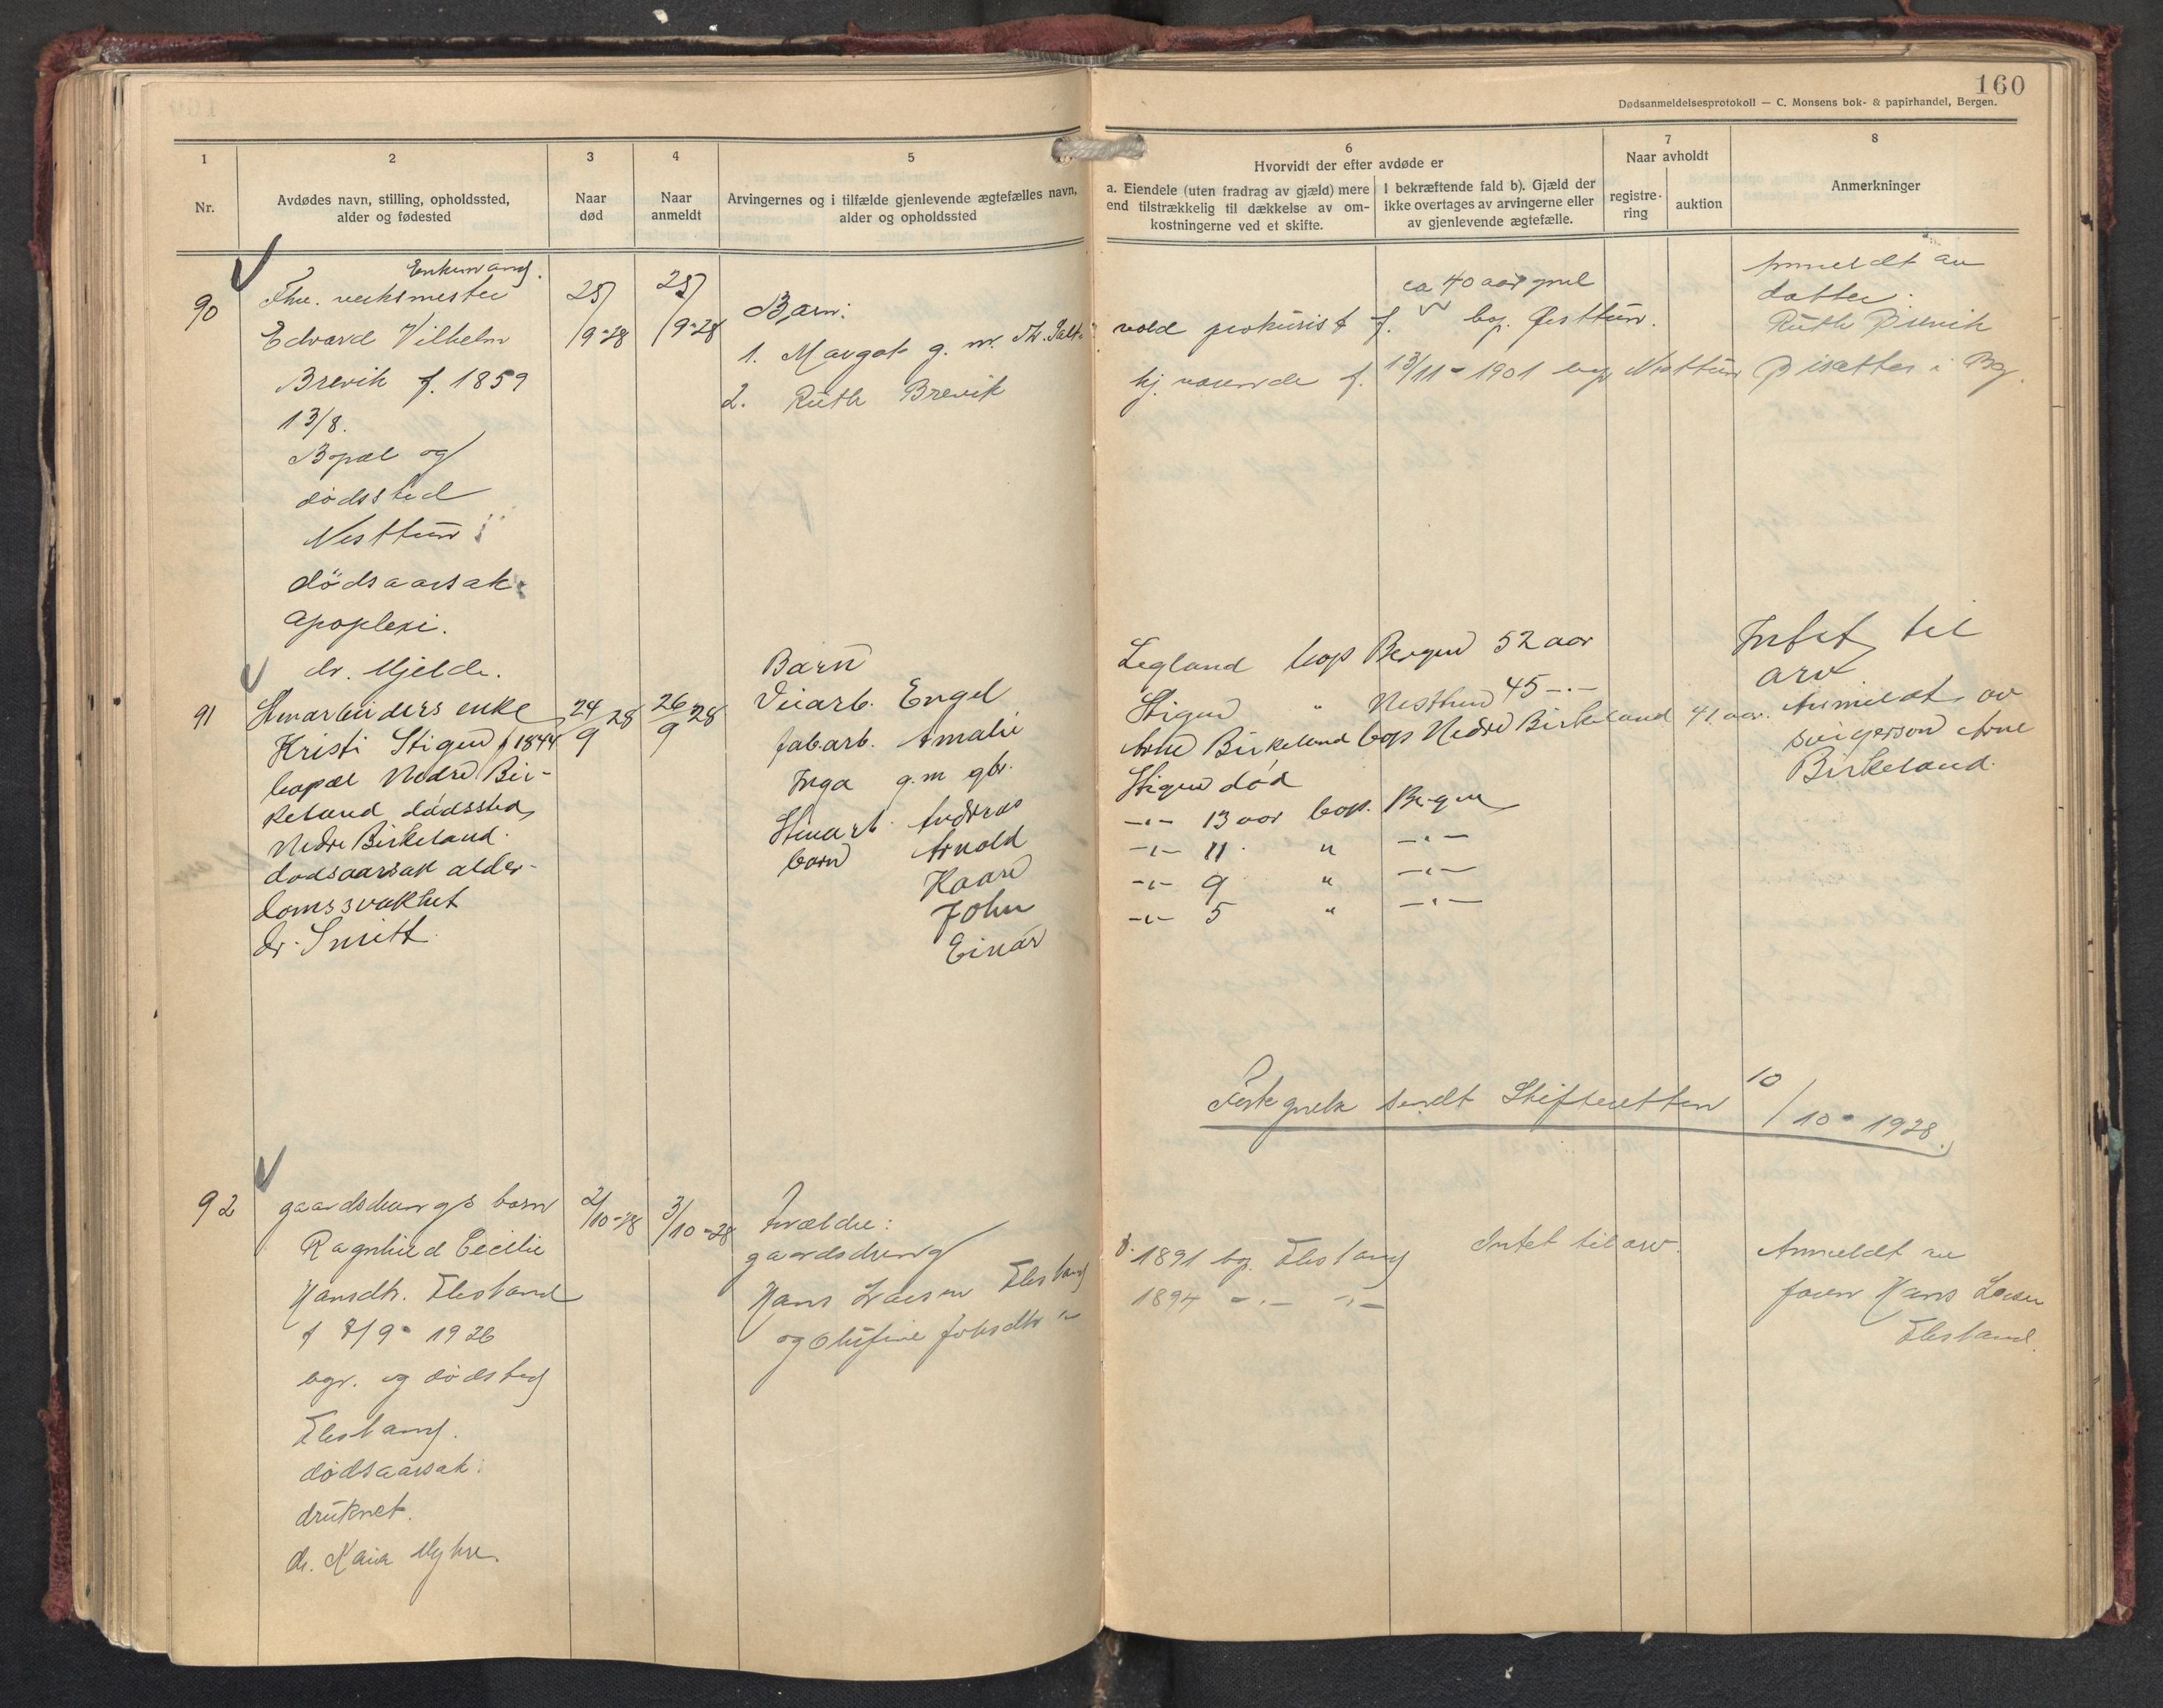 160
Dødsanmeldelsesprotokoll — C. Monsens bok- & papirhandel, Bergen.
1
Nr.
2
Avdødes navn, stilling, opholdssted,
alder og fødested
3
Naar
død
4
Naar
anmeldt
5
Arvingernes og i tilfælde gjenlevende ægtefælles navn,
alder og opholdssted
6
Hvorvidt der efter avdøde er
a. Eiendele (uten fradrag av gjæld) mere
end tilstrækkelig til dækkelse av om-
kostningerne ved et skifte.
I bekræftende fald b). Gjæld der
ikke overtages av arvingerne eller
av gjenlevende ægtefælle.
7
Naar avholdt
registre-
ring
auktion
8
Anmerkninger
90
Enkemand.
Fhv. verksmester
Edvard Vilhelm
Brevik f. 1859
13/8.
Bopæl og
dødssted
Nesttun
dödsaarsak
apoplexi.
dr. Mjelde.
25/9-28
25/9-28
Barn:
1. Margot g. m.
2. Ruth Brevik
ca 40 aar gml
vold prokurist f. bop. Nesttun.
hj. værende f. 13/11-1901 bop Nesttun
Anmeldt av
datter
Ruth Brevik
91
Stenarbeiders enke
Kristi Stigen f 1844
bopæl Nedre Bir-
keland dødssted
Nedre Birkeland.
dødsaarsak alder-
domssvakhet
dr. Smitt.
24/9 28
26/9 28
Barn
Veiarb. Engel
fabarb. Amalie
Inga g.m gbr.
Stenarb. Andreas
barn Arnold
Kaare
John
Einar
Legland bop Bergen 52 aar
Stigen " Nesttun 45 -"-
Arne Birkeland bop Nedre Birkeland 41 aar.
Stigen død
-"- 13 aar bop. Bergen
-"- 11 " -"-
-"- 9 " -"-
-"- 5 " -"-
Intet til
arv
Anmeldt av
svigersøn Arne
Birkeland.
sendt Skifteretten 10/10-1928.
92
gaardsdrengs barn
Ragnhild Cecilie
Hansdtr. Flesland
f 8/9-1926
bop. og dødssted
Flesland.
dødsaarsak:
druknet.
dr. Kaia Myhre.
2/10-28
3/10-28
Forældre:
gaardsdreng
Hans Larsen Flesland
og Olufine Johsdtr "
f. 1891 bop. Flesland
1894 -"- -"-
Intet til arv.
Anmeldt av
faren Hans Larsen
Flesland.